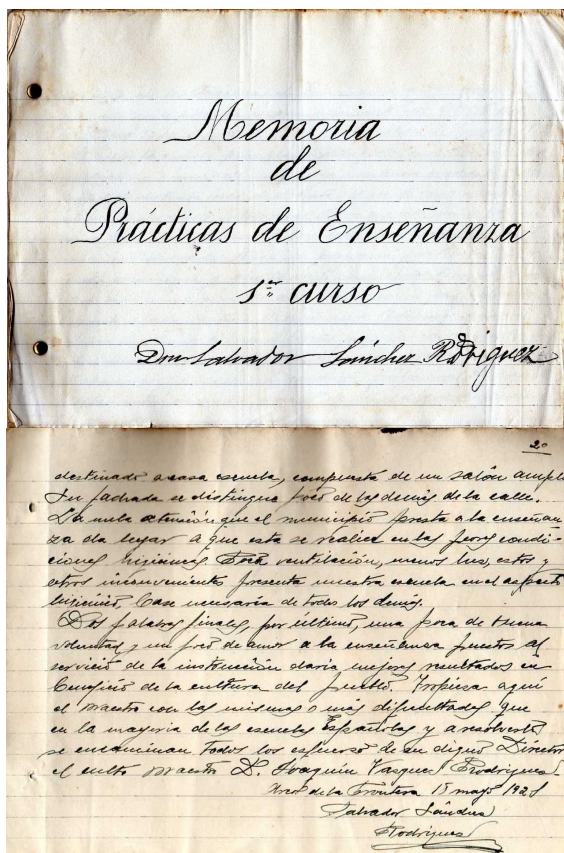 Memoria
de
Prácticas de Enseñanza
1er curso
Don Salvador Sánchez Rodriguez
2º
destinado a casa escuela, compuesta de un salón ampli
Su fachada se distingue poco de las demás de la calle.
La nula atención que el municipio presta a la enseñan
za da lugar a que esta se realice en las peores condi-
ciones higiénicas. Poca ventilación, menos luz, estos y
otros inconvenientes presenta nuestra escuela en el aspecto
higiénico, base necesaria de todos los demás.
Dos palabras finales, por último, una poca de buena
voluntad y un poco de amor a la enseñanza puestos al
servicio de la instrucción daría mejores resultados en
beneficio de la cultura del pueblo. Tropieza aquí
el maestro con las mismas o más dificultades que
en la mayoría de las escuelas Españolas y a resolverlas
se encaminan todos los esfuerzos de su digno Director
el culto maestro D. Joaquín Vasquez Rodriguez.
Arcos de la Frontera 15 mayo 192
Salvador Sánchez
Rodriguez